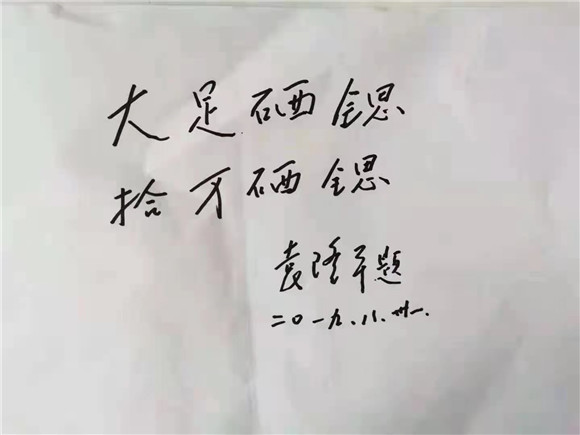 大足硒锶
拾万硒锶
袁隆平题
二〇一九.八.卅一.